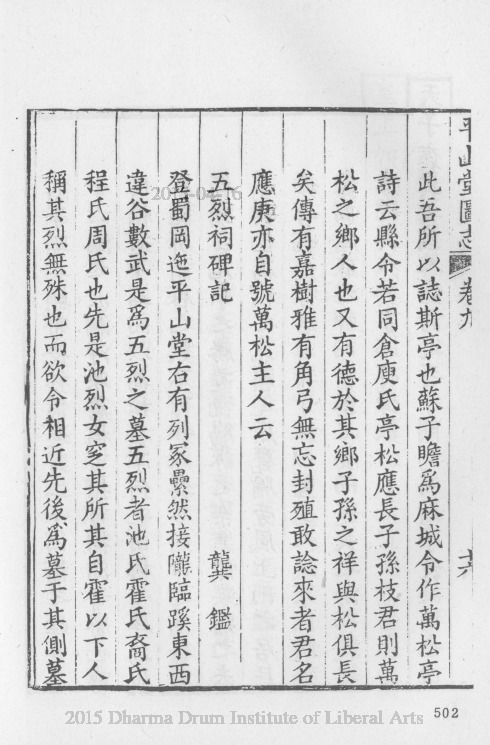 平山堂圖志 卷九 十六
此吾所以誌斯亭也蘇子瞻為麻城令作萬松亭
詩云縣令若同倉庾氏亭松應長子孫枝君則萬
松之鄉人也又有德於其鄉子孫之祥與松俱長
矣傳有嘉樹雅有角弓無忘封殖敢諗來者君名
應庚亦自號萬松主人云
五烈祠碑記 龔鑑
登蜀岡迤平山堂右有列冢纍然接隴臨蹊東西
違谷數武是為五烈之墓五烈者池氏霍氏裔氏
程氏周氏也先是池烈女窆其所其自霍以下人
稱其烈無殊也而欲令相近先後為墓于其側墓
502
2015 Dharma Drum Institute of Liberal Arts